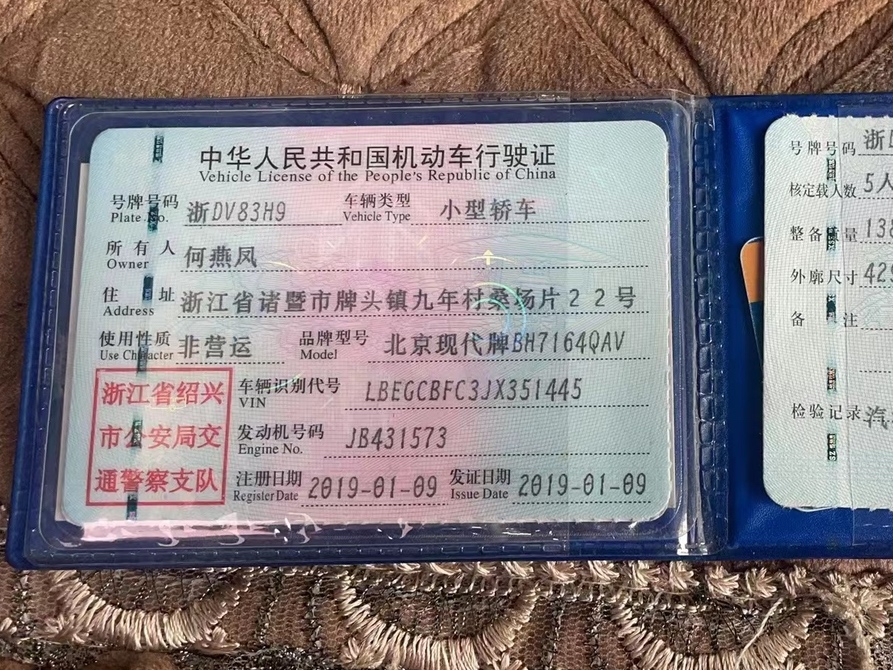 中华人民共和国机动车行驶证
Vehicle License of the People's Republic of China
号牌号码 浙DV83H9 车辆类型 小型轿车
Plate No. Vehicle Type
所有人 何燕凤
Owner
住址 浙江省诸暨市牌头镇九年村桑场片22号
Address
使用性质 非营运 品牌型号 北京现代牌BH7164QAV
Use Character Model
浙江省绍兴
市公安局交
通警察支队
车辆识别代号 LBEGCBFC3JX351445
VIN
发动机号码 JB431573
Engine No.
注册日期 2019-01-09 发证日期 2019-01-09
Register Date Issue Date
号牌号码 浙
核定载人数 5人
整备质量 138
外廓尺寸 429
备注
检验记录 汽